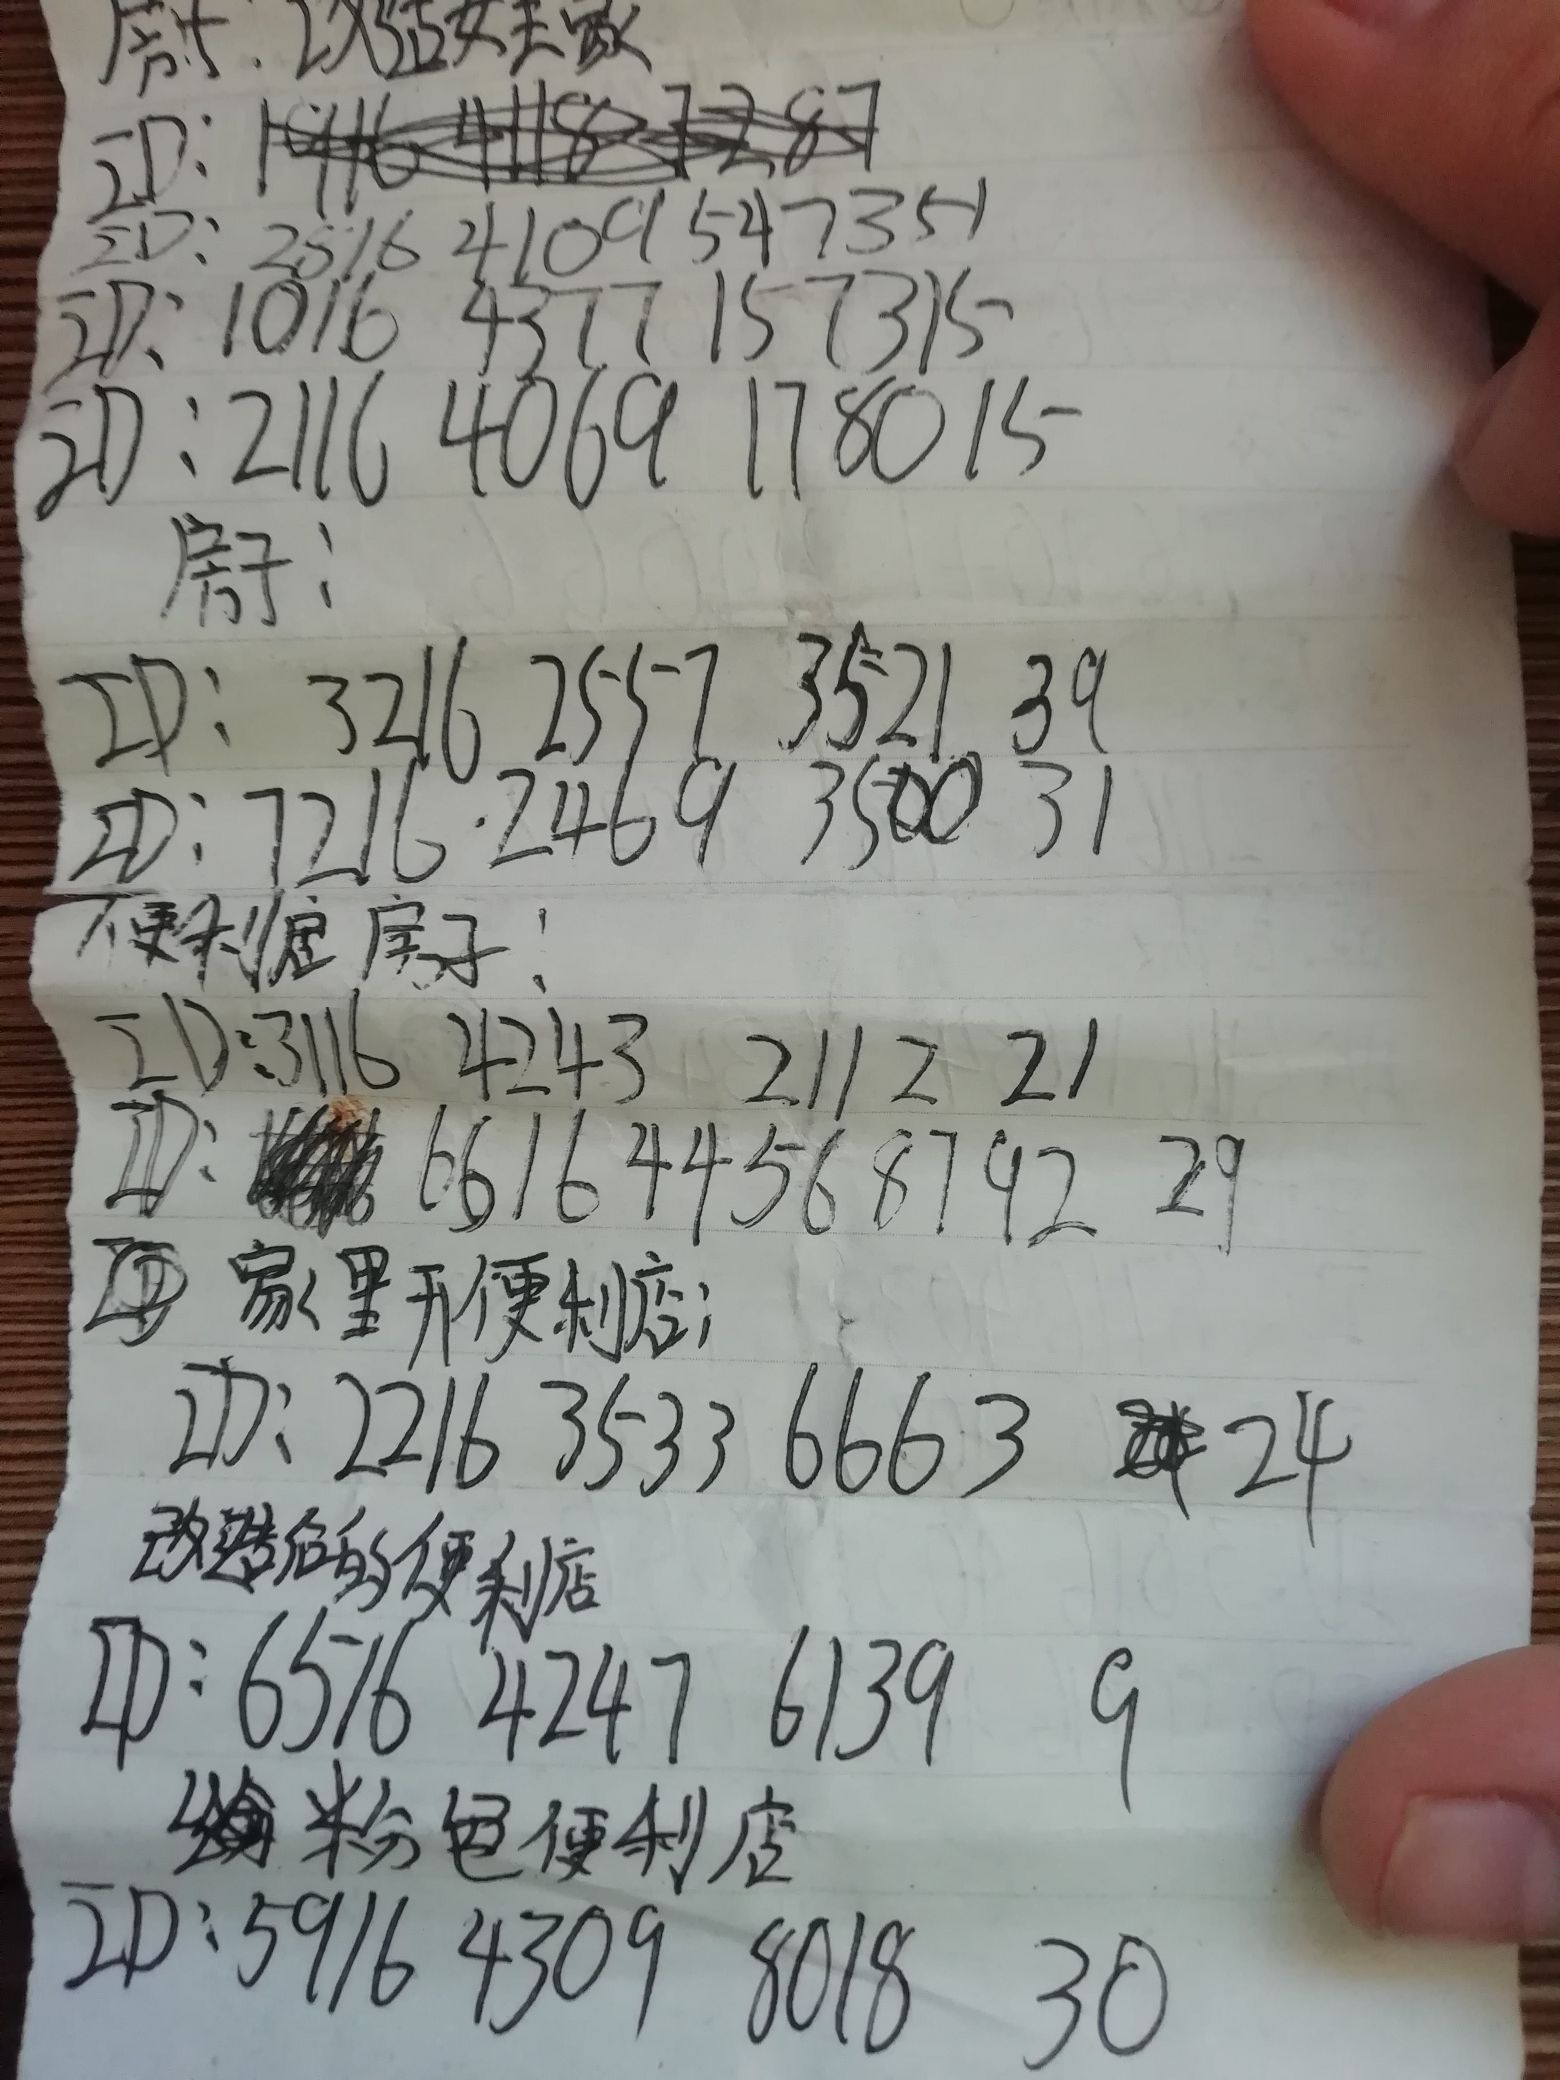 女主家
ID: 1916 4118 7287
ID: 2816 4109 547351
ID: 1016 4377 157315
ID: 2116 4069 178015
房子:
ID: 3216 2557 3521 39
ID: 7216 2469 3500 31
便利店房子:
ID: 3116 4243 2112 21
ID: 6616 4456 8792 29
家里开便利店:
ID: 2216 3533 6663 24
改造后的便利店
ID: 6516 4247 6139 9
粉色便利店
ID: 5916 4309 8018 30